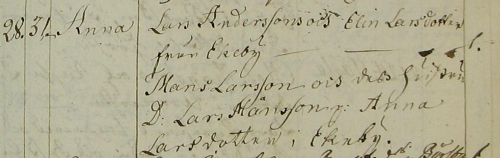 28. 31. Anna Lars Anderssons och Elin Larsdotter
från Ekeby
Måns Larsson och dess hustru
D: Lars Månsson, p: Anna
Larsdotter i Ekeby.